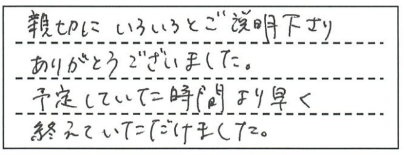 親切にいろいろとご説明下さり
ありがとうございました。
予定していた時間より早く
終えていただけました。